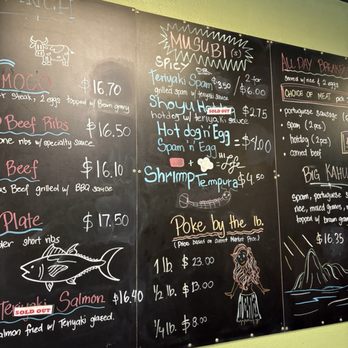 MOCO $16.70
Steak, 2 eggs topped w/ Brown gravy
Beef Ribs $16.50
one ribs w/ specialty sauce.
Beef $16.10
Beef grilled w/ BBQ sauce
Plate $17.50
short ribs
SOLD OUT
Teriyaki Salmon $16.40
Salmon fried w/ Teriyaki glazed.
MUSUBI (s)
SPICY
Teriyaki Spam $3.50 / 2 for $6.00
grilled spam w/ teriyaki sauce
Shoyu SOLD OUT $2.75
hotdog w/ teriyaki sauce
Hot dog 'n' Egg
Spam 'n' Egg $4.00
Shrimp Tempura $4.50
Poke by the lb.
(Price based on Current Market Price.)
1 lb. $23.00
1/2 lb. $13.00
1/4 lb. $8.00
ALL DAY BREAKF
Served w/ rice & 2 eggs
CHOICE OF MEAT
- portuguese sausage
- spam (2 pcs)
- hotdog (2 pcs)
- corned beef
BIG KAHU
spam, portuguese s
rice, mixed greens,
topped w/ brown gra
$16.35
SOLD OUT